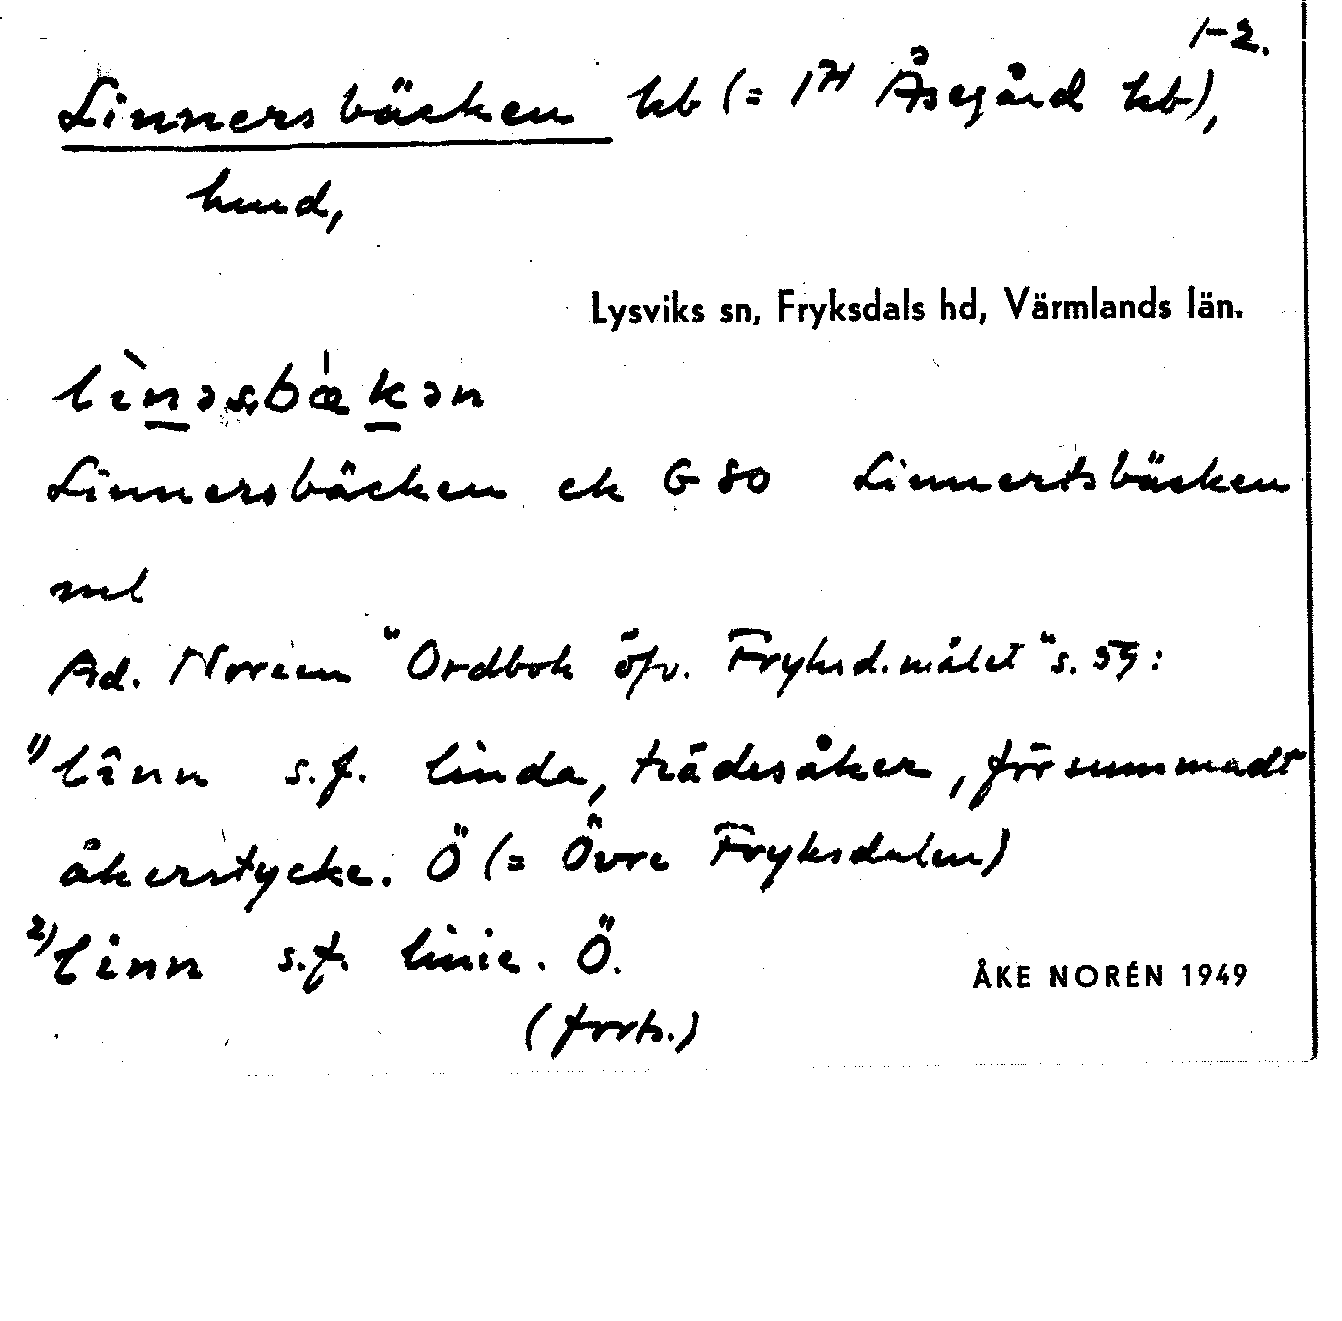 1-2.
Linnersbäcken hb (= 1⁷¹ Åsegård hb),
hmd,
Lysviks sn, Fryksdals hd, Värmlands län.
lìnəsbæ̍kən
Linnersbäcken ek G 80 Linnertsbäcken
Ad. Noreen "Ordbok öfv. Fryksd.målet" s. 59:
1) lînn s.f. linda, trädesåker, försummadt
åkerstycke. Ö (= Övre Fryksdalen)
2) linn s.f. linie. Ö.
ÅKE NORÉN 1949
(forts.)